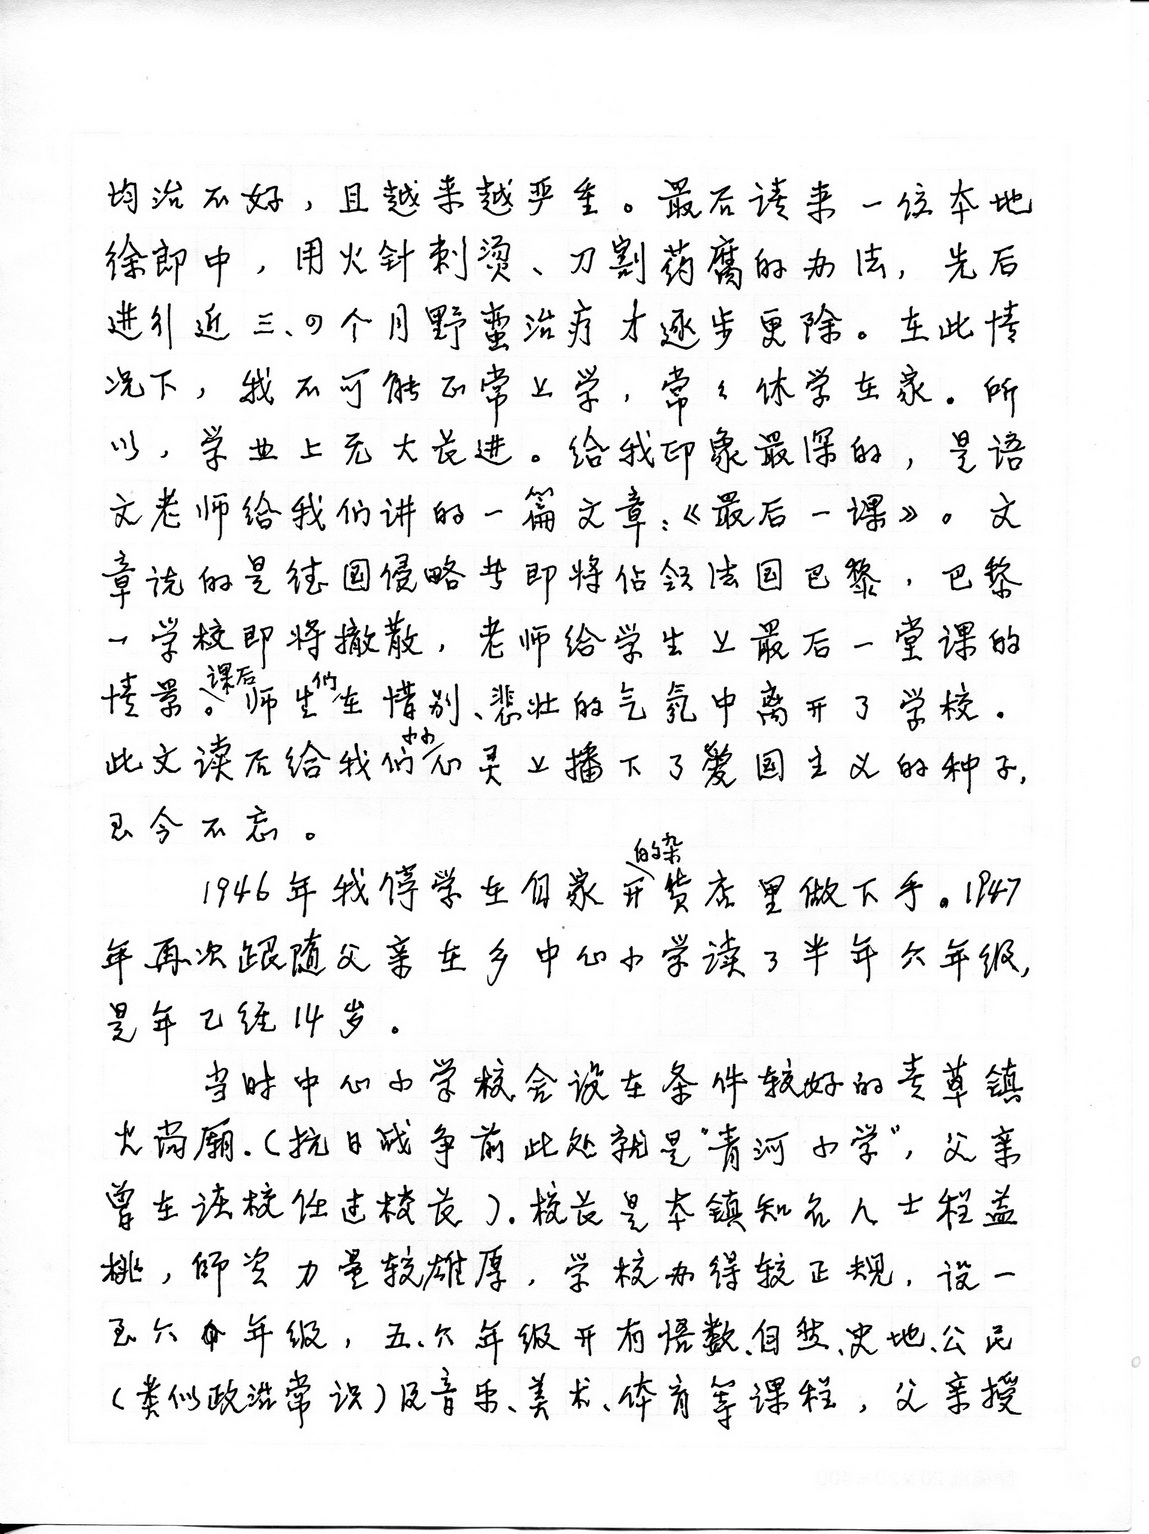 均治不好，且越来越严重。最后请来一位本地
徐郎中，用火针刺烫、刀割药腐的办法，先后
进行近三、四个月野蛮治疗才逐步更除。在此情
况下，我不可能正常上学，常々休学在家。所
以，学业上无大长进。给我印象最深的，是语
文老师给我们讲的一篇文章：《最后一课》。文
章说的是德国侵略者即将佔领法国巴黎，巴黎
一学校即将撤散，老师给学生上最后一堂课的
情景。课后师生们在惜别、悲壮的气氛中离开了学校。
此文读后给我们小小心灵上播下了爱国主义的种子，
至今不忘。
1946年我停学在自家开的杂货店里做下手。1947
年再次跟随父亲在乡中心小学读了半年六年级，
是年已经14岁。
当时中心小学校舍设在条件较好的青草镇
火尚廟.（抗日战争前此处就是“青河小学”，父亲
曾在该校任过校长）.校长是本镇知名人士程益
桃，师资力量较雄厚，学校办得较正规，设一
至六个年级，五、六年级开有语数、自然、史地、公民
（类似政治常识）及音乐、美术、体育等课程，父亲授